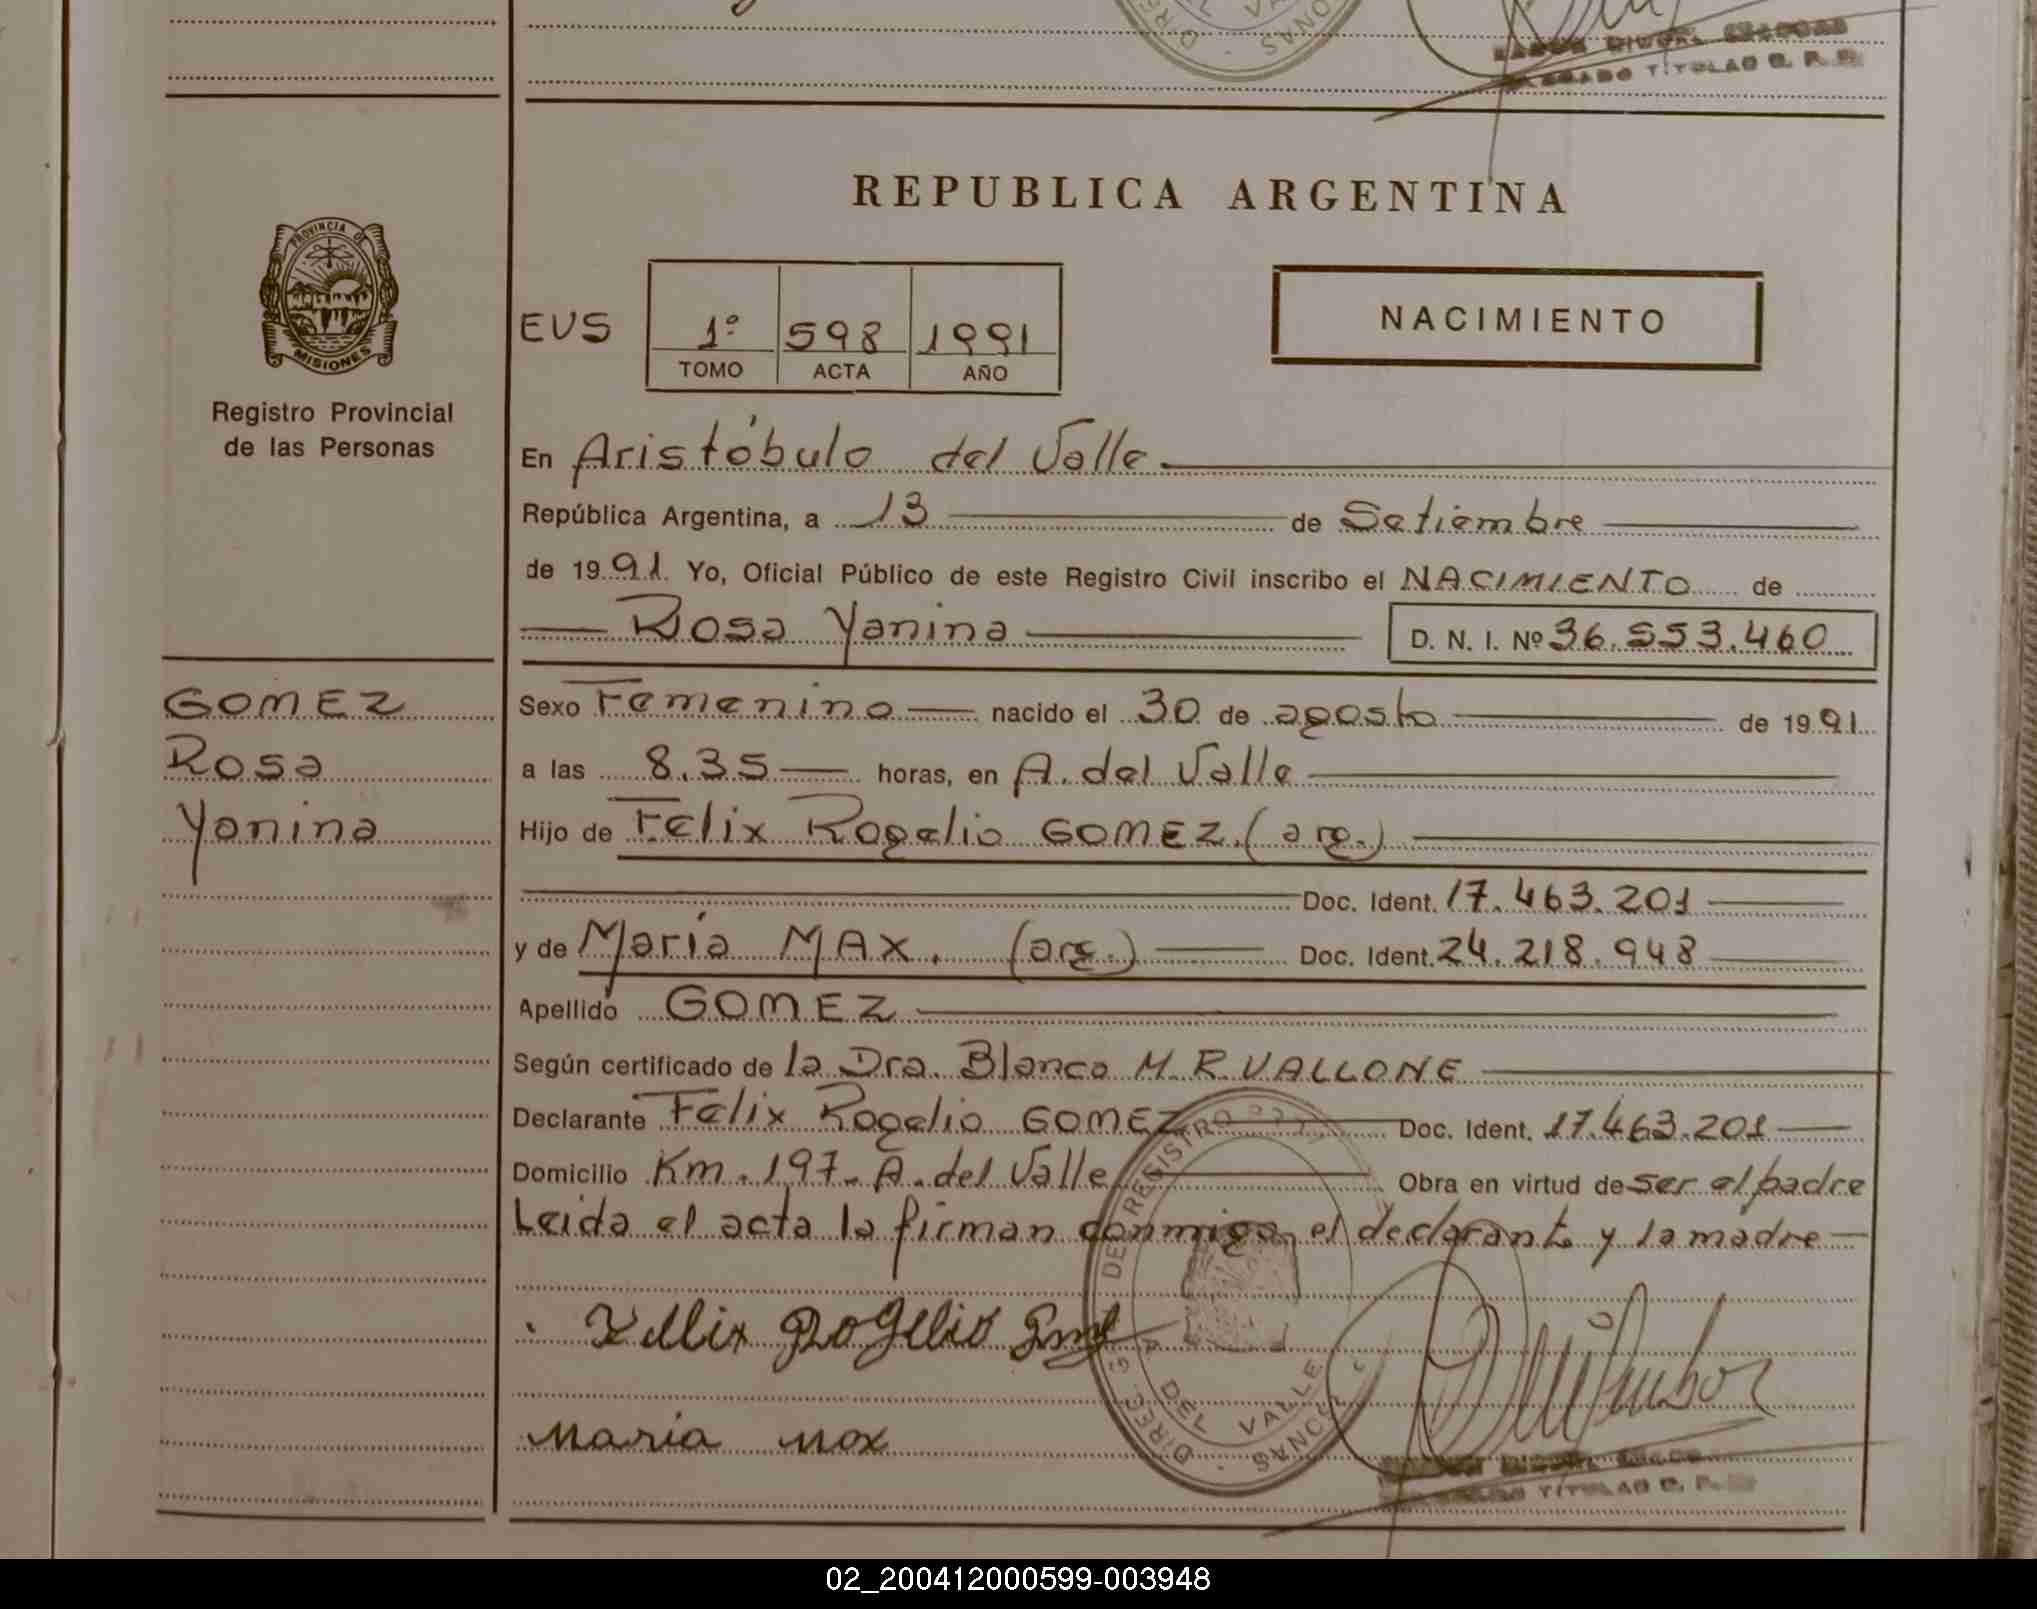 REPUBLICA ARGENTINA
PROVINCIA DE
MISIONES
Registro Provincial
de las Personas
EVS 1º 598 1991
TOMO ACTA AÑO
NACIMIENTO
En Aristóbulo del Valle
República Argentina, a 13 de Setiembre
de 1991 Yo, Oficial Público de este Registro Civil inscribo el NACIMIENTO de
Rosa Yanina D. N. I. Nº 36.553.460
GOMEZ
Rosa
Yanina
Sexo Femenino nacido el 30 de agosto de 1991
a las 8.35 horas, en A. del Valle
Hijo de Felix Rogelio GOMEZ.(arg.)
Doc. Ident. 17.463.201
y de María MAX. (arg.) Doc. Ident. 24.218.948
Apellido GOMEZ
Según certificado de la Dra. Blanca M. R. VALLONE
Declarante Felix Rogelio GOMEZ Doc. Ident. 17.463.201
Domicilio Km. 197- A. del Valle Obra en virtud de ser el padre
Leida el acta la firman conmigo, el declarante y la madre
DE REGISTRO
DEL VALLE
Maria Max
TITULAR
02_200412000599-003948